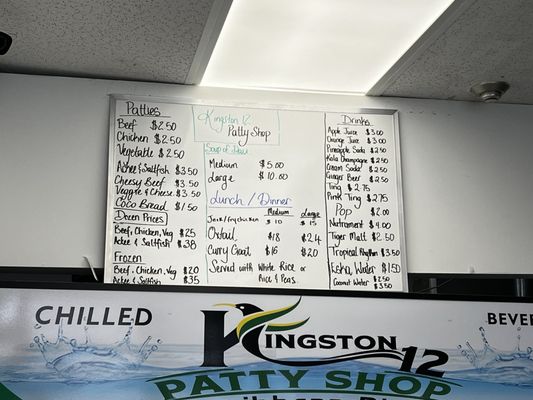 Patties
Beef $2.50
Chicken $2.50
Vegetable $2.50
Ackee & Saltfish $3.50
Cheesy Beef $3.50
Veggie & Cheese $3.50
Coco Bread $1.50
Dozen Prices
Beef, Chicken, Veg $25
Ackee & Saltfish $38
Frozen
Beef, Chicken, Veg $20
Ackee & Saltfish $35
Kingston 12
Patty Shop
Soup of Day
Medium $5.00
Large $10.00
Lunch / Dinner
Medium Large
Jerk/fry chicken $10 $15
Oxtail $18 $24
Curry Goat $16 $20
Served with White Rice or
Rice & Peas
Drinks
Apple Juice $3.00
Orange Juice $3.00
Pineapple Soda $2.50
Kola Champagne $2.50
Cream Soda $2.50
Ginger Beer $2.50
Ting $2.75
Pink Ting $2.75
Pop $2.00
Nutrament $4.00
Tiger Malt $2.50
Tropical Rhythm $3.50
Eska Water $1.50
Coconut Water $2.50
$3.50
CHILLED
KINGSTON 12
PATTY SHOP
BEVER